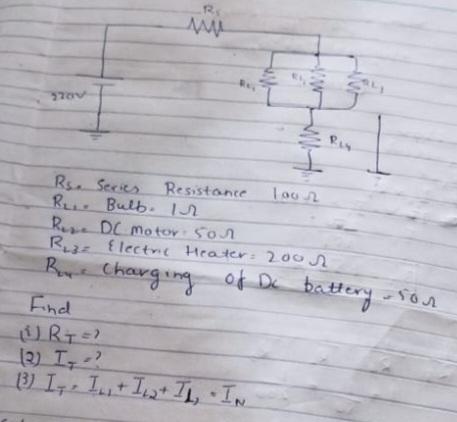 Rs
RL2 RL1 RL3
220V
RL4
Rs = Series Resistance 100Ω
RL1 = Bulb = 1Ω
RL2 = DC motor = 50Ω
RL3 = Electric Heater = 200Ω
RL4 = Charging of Dc battery = 50Ω
Find
(1) RT = ?
(2) IT = ?
(3) IT = IL1 + IL2 + IL3 = IN